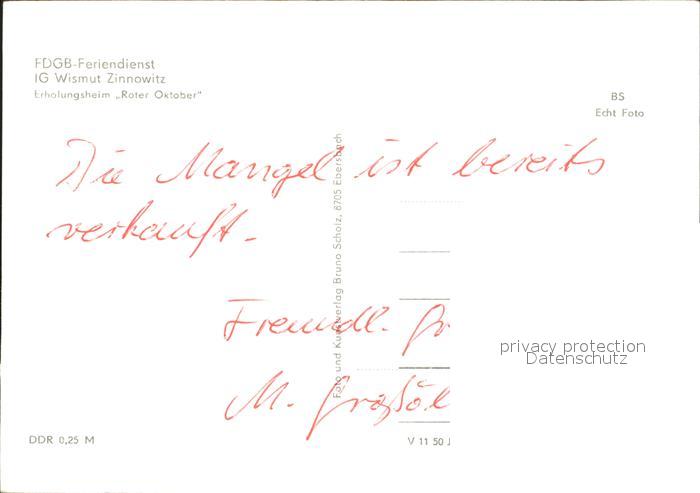 FDGB-Feriendienst
IG Wismut Zinnowitz
Erholungsheim „Roter Oktober"
BS
Echt Foto
Die Mangel ist bereits
verkauft.
Freundl. Gr
M.
Foto und Kunstverlag Bruno Scholz, 8705 Ebersbach
privacy protection
Datenschutz
DDR 0,25 M
V 11 50 J